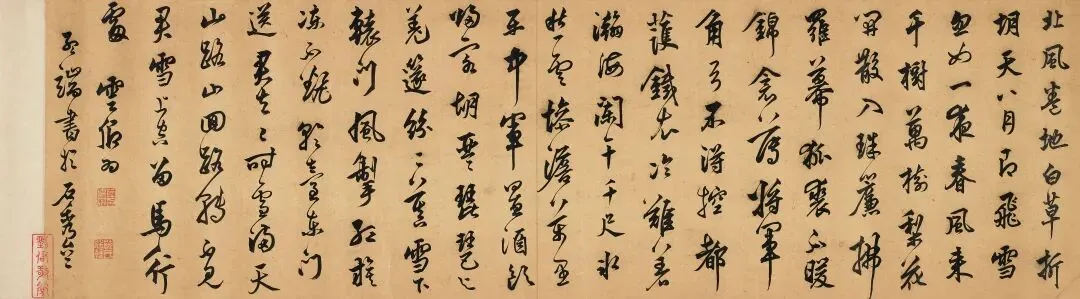 北風卷地白草折
胡天八月即飛雪
忽如一夜春風來
千樹萬樹梨花
開散入珠簾拂
羅幕狐裘不暖
錦衾薄將軍
角弓不得控都
護鐵衣冷難著
瀚海闌干千尺冰
愁雲慘澹萬里
中軍置酒飲
歸客胡琴琵琶與
羌篴紛紛暮雪下
轅門風掣紅旗
凍不翻輪臺東門
送君去去時雪滿天
山路山回路轉不見
君雪上空留馬行
處
端書於石秀